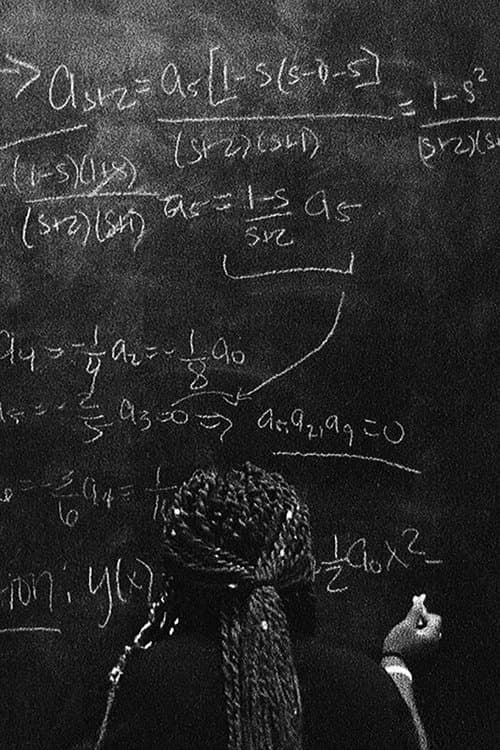 → a_{s+2} = a_s [1 - s(s-1) - s] / (s+2)(s+1) = 1-s² / (s+2)(s
(1-s)(1+s) / (s+2)(s+1) a_s = 1-s / s+2 a_s
a_4 = -1/4 a_2 = -1/8 a_0
= -2/5 a_3 = 0 ⇒ a_5, a_7, a_9 = 0
= -3/6 a_4 = 1/1
ion: y(x)
1/2 a_0 x² -